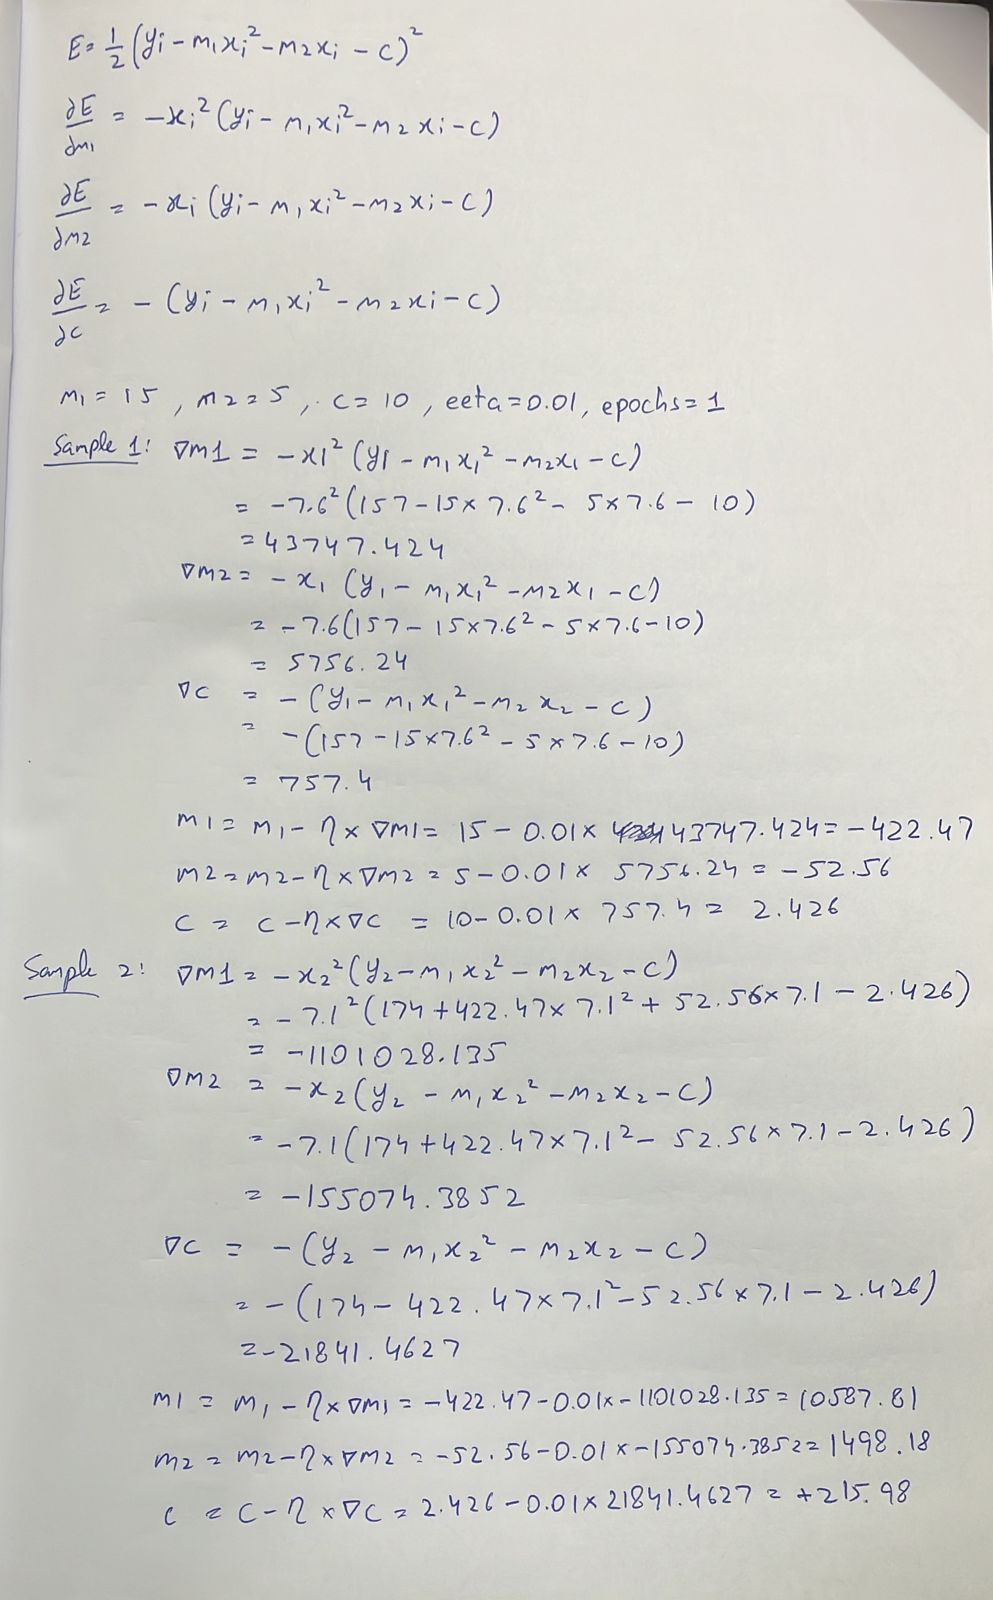 E = 1/2 (yi - m1xi² - m2xi - c)²
∂E/∂m1 = -xi² (yi - m1xi² - m2xi - c)
∂E/∂m2 = -xi (yi - m1xi² - m2xi - c)
∂E/∂c = - (yi - m1xi² - m2xi - c)
m1 = 15, m2 = 5, c = 10, eeta = 0.01, epochs = 1
Sample 1: ∇m1 = -x1² (y1 - m1x1² - m2x1 - c)
= -7.6² (157 - 15 x 7.6² - 5 x 7.6 - 10)
= 43747.424
∇m2 = -x1 (y1 - m1x1² - m2x1 - c)
= -7.6 (157 - 15 x 7.6² - 5 x 7.6 - 10)
= 5756.24
∇c = - (y1 - m1x1² - m2x2 - c)
= - (157 - 15 x 7.6² - 5 x 7.6 - 10)
= 757.4
m1 = m1 - η x ∇m1 = 15 - 0.01 x 43747.424 = -422.47
m2 = m2 - η x ∇m2 = 5 - 0.01 x 5756.24 = -52.56
c = c - η x ∇c = 10 - 0.01 x 757.4 = 2.426
Sample 2: ∇m1 = -x2² (y2 - m1x2² - m2x2 - c)
= -7.1² (174 + 422.47 x 7.1² + 52.56 x 7.1 - 2.426)
= -1101028.135
∇m2 = -x2 (y2 - m1x2² - m2x2 - c)
= -7.1 (174 + 422.47 x 7.1² - 52.56 x 7.1 - 2.426)
= -155074.3852
∇c = - (y2 - m1x2² - m2x2 - c)
= - (174 - 422.47 x 7.1² - 52.56 x 7.1 - 2.426)
= -21841.4627
m1 = m1 - η x ∇m1 = -422.47 - 0.01 x -1101028.135 = 10587.81
m2 = m2 - η x ∇m2 = -52.56 - 0.01 x -155074.3852 = 1498.18
c = c - η x ∇c = 2.426 - 0.01 x 21841.4627 = +215.98